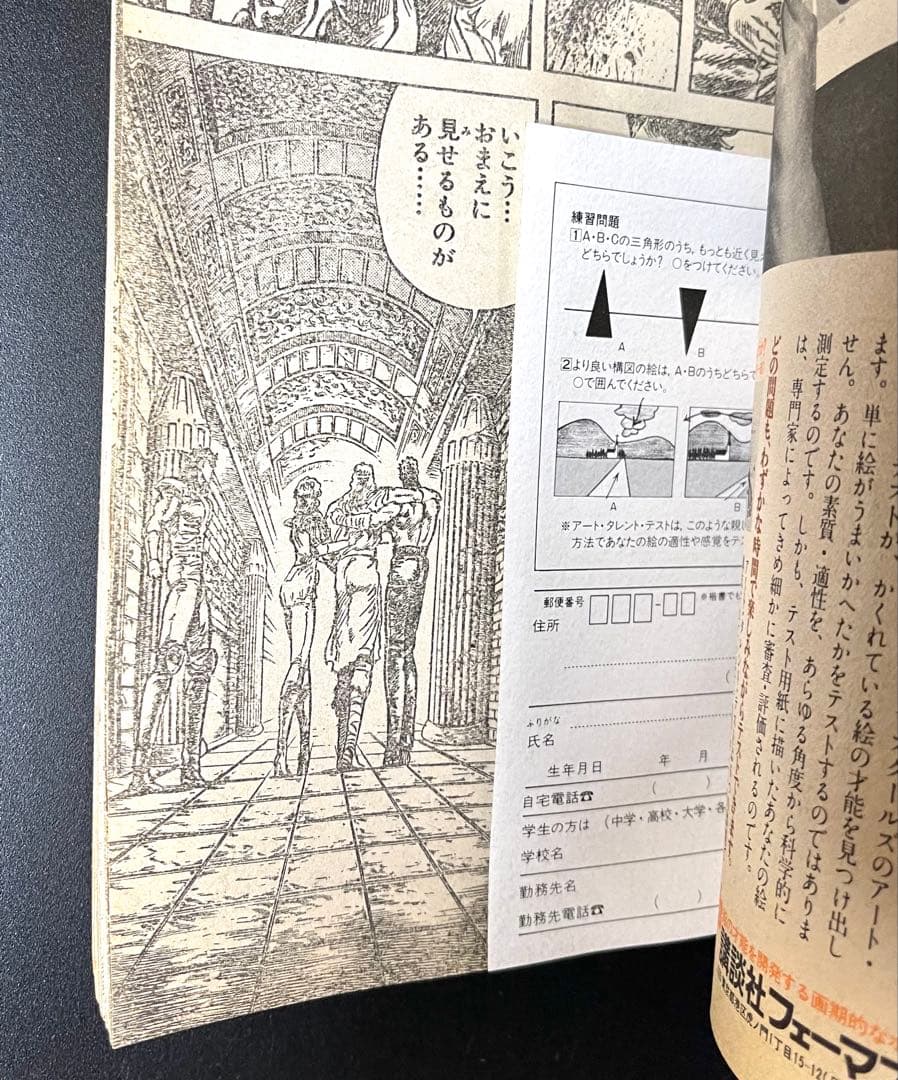 いこう…
おまえに
見せるものが
ある……
練習問題
1 A・B・Cの三角形のうち、もっとも近く見え
どちらでしょうか? ○をつけてください。
A
B
2 より良い構図の絵は、A・Bのうちどちらで
○で囲んでください。
A
B
※アート・タレント・テストは、このような親し
方法であなたの絵の適性や感覚をテス
郵便番号
住所
ふりがな
氏名
生年月日 年 月
自宅電話☎ ( )
学生の方は (中学・高校・大学・各
学校名
勤務先名
勤務先電話☎ ( )
かくれている絵の才能を見つけ出し
ます。単に絵がうまいかへたかをテストするのではありま
せん。あなたの素質・適性を、あらゆる角度から科学的に
測定するのです。しかも、テスト用紙に描いたあなたの絵
は、専門家によってきめ細かに審査・評価されるのです。
どの問題も、わずかな時間で楽しみながら
才能を開発する画期的な
講談社フェーマ
虎ノ門1丁目15-12